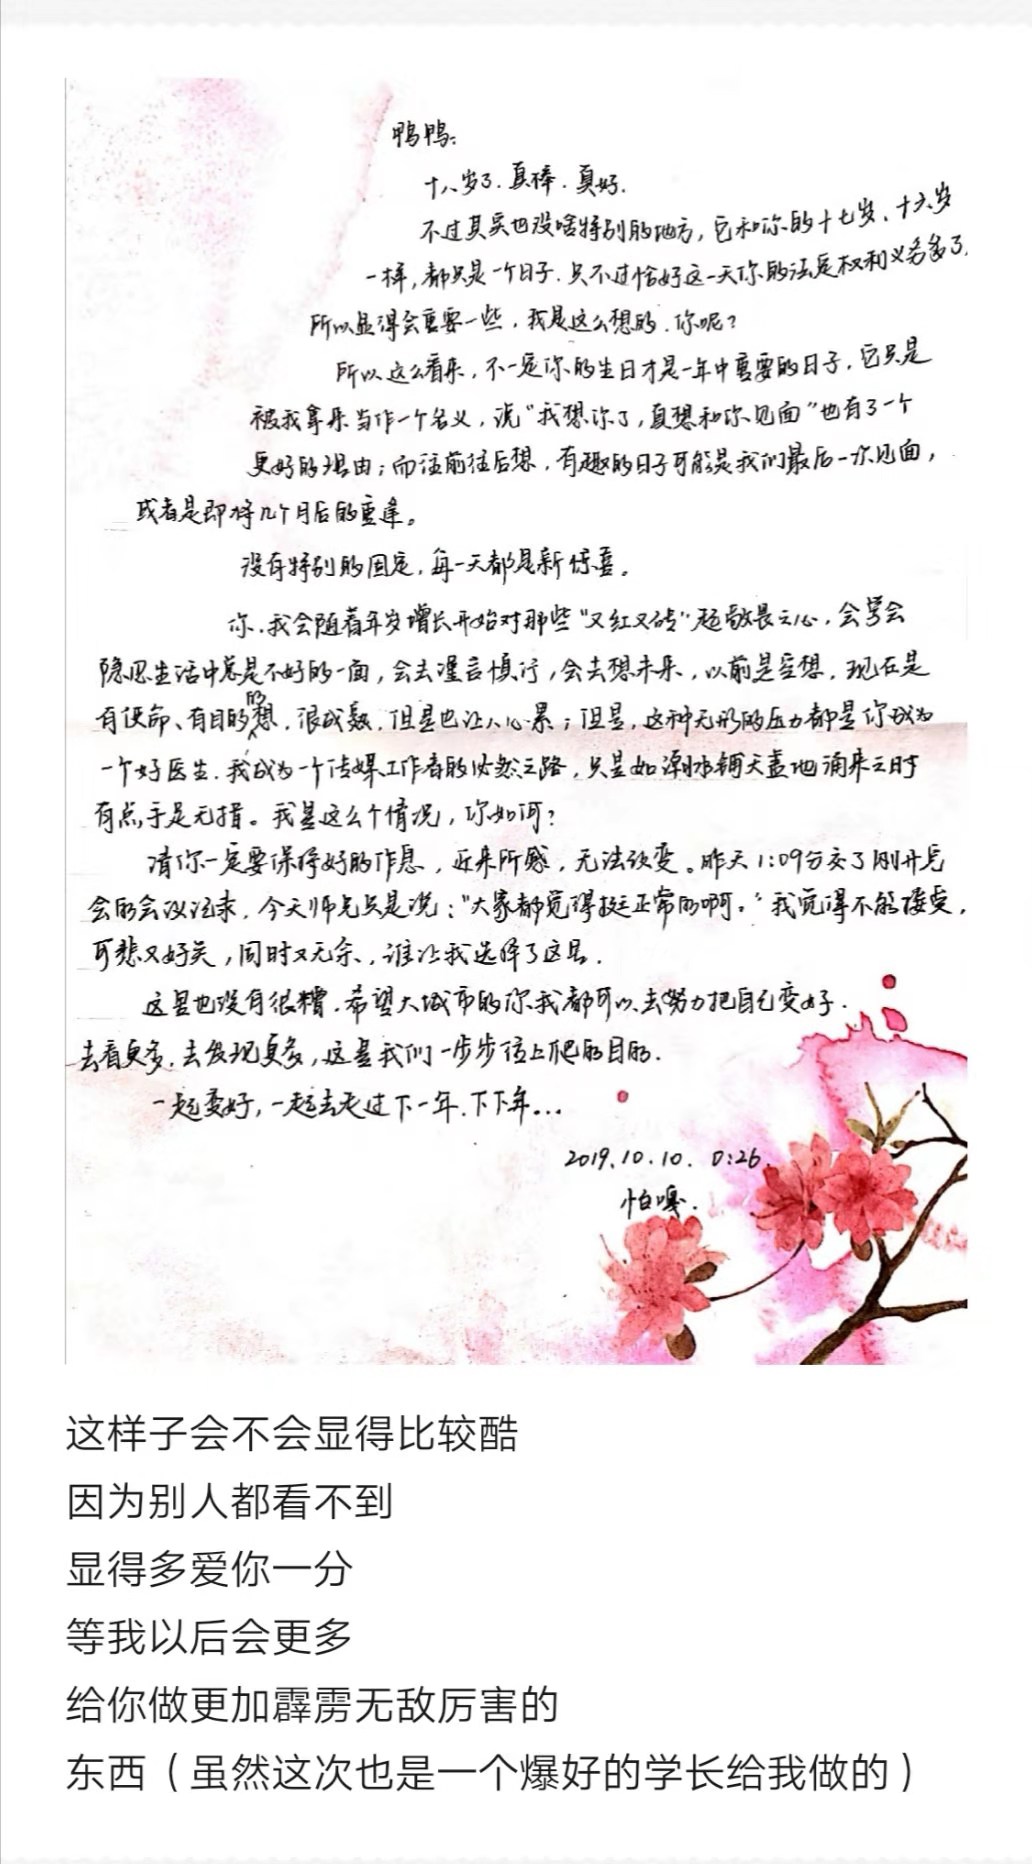 鸭鸭:
十八岁了.真棒.真好.
不过其实也没啥特别的地方,它和你的十七岁、十六岁
一样,都只是一个日子.只不过恰好这一天你的法定权利义务多了.
所以显得会重要一些.我是这么想的.你呢?
所以这么看来,不一定你的生日才是一年中重要的日子,它只是
被我拿来当作一个名义,说"我想你了,真想和你见面"也有了一个
更好的理由;而往前往后想,有趣的日子可能是我们最后一次见面,
或者是即将几个月后的重逢。
没有特别的固定,每一天都是新惊喜。
你.我会随着年岁增长开始对那些"又红又砖"起敬畏之心,会学会
隐忍生活中总是不好的一面,会去谨言慎行,会去想未来,以前是空想,现在是
有使命、有目的的想.很成熟,但是也让人心累;但是,这种无形的压力都是你成为
一个好医生.我成为一个传媒工作者的必然之路,只是如潮水铺天盖地涌来之时
有点手足无措。我是这么个情况,你如何?
请你一定要保持好的作息,近来所感,无法改变。昨天1:09分交了刚开完
会的会议记录,今天师兄只是说:"大家都觉得挺正常的啊。"我觉得不能接受,
可悲又好笑,同时又无奈,谁让我选择了这呢.
这里也没有很糟.希望大城市的你我都可以去努力把自己变好.
去看更多.去发现更多,这是我们一步步往上爬的目的.
一起变好,一起去走过下一年.下下年...
2019.10.10. 0:26.
怕嘎.
这样子会不会显得比较酷
因为别人都看不到
显得多爱你一分
等我以后会更多
给你做更加霹雳无敌厉害的
东西(虽然这次也是一个爆好的学长给我做的)